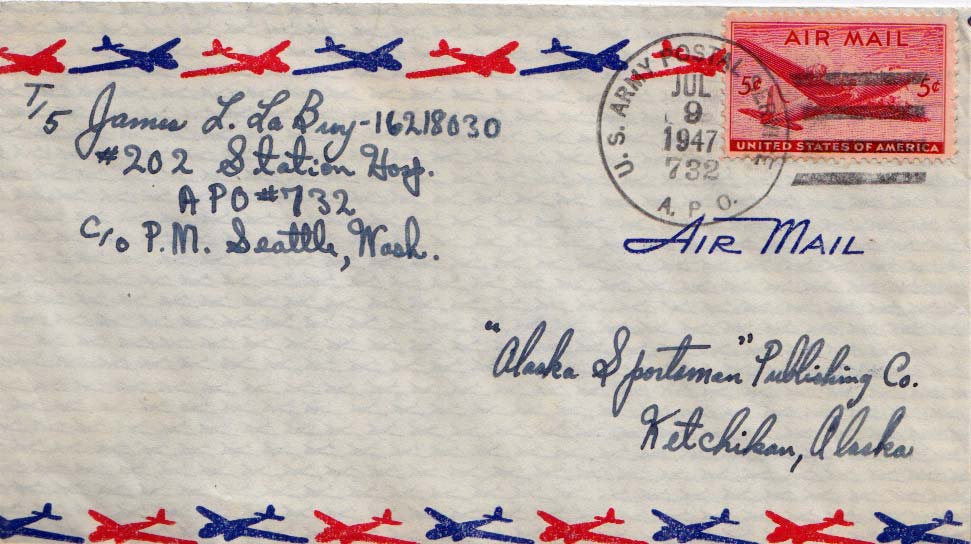 T/5 James L. La Buy-16218030
#202 Station Hosp.
APO #732
C/o P.M. Seattle, Wash.
U.S. ARMY POSTAL SERVICE
JUL
9
1947
732
A. P. O.
AIR MAIL
5¢ 5¢
UNITED STATES OF AMERICA
AIR MAIL
"Alaska Sportsman" Publishing Co.
Ketchikan, Alaska